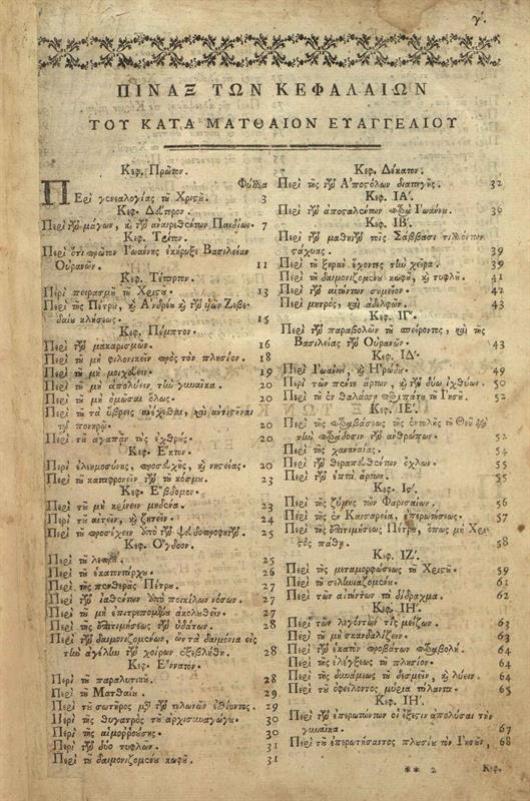 γ'.
ΠΙΝΑΞ ΤΩΝ ΚΕΦΑΛΑΙΩΝ
ΤΟΥ ΚΑΤΑ ΜΑΤΘΑΙΟΝ ΕΥΑΓΓΕΛΙΟΥ
Κεφ. Πρῶτον.
Φύλλα
ΠΕρὶ γενεαλογίας τῦ Χριςῦ. 3
Κεφ. Δεύτερον.
Περὶ τῶν μάγων, κ τῶν ἀναιρεθέντων Παιδίων. 7
Κεφ. Τρίτον.
Περὶ ὅτι πρῶτον Ἰωάννης ἐκήρυξε Βασιλείαν
Οὐρανῶν. 11
Κεφ. Τέταρτον.
Περὶ πειρασμῦ τῦ Χριςῦ. 13
Περὶ τῆς Πέτρυ, κ Ἀνδρέυ κ τῶν υἱῶν Ζεβε-
δαίυ κλήσεως. 15
Κεφ. Πέμπτον.
Περὶ τῶν μακαρισμῶν. 16
Περὶ τῦ μὴ φιλονεικεῖν πρὸς τὸν πλησίον. 18
Περὶ τῦ μὴ μοιχεύειν. 19
Περὶ τῦ μὴ ἀπολύειν τὴν γυναῖκα. 20
Περὶ τῦ μὴ ὀμόσαι ὅλως. 20
Περὶ τῦ τὰ ὕβρεις ἀνέχεσθαι, καὶ
τῷ πονηρῷ. 20
Περὶ τῦ ἀγαπᾶν τὺς ἐχθρύς. 20
Κεφ. Ἕκτον.
Περὶ ἐλεημοσύνης, προσευχῆς, κ νηςείας. 20
Περὶ τῦ καταφρονεῖν τῦ κόσμυ. 23
Κεφ. Ἕβδομον.
Περὶ τῦ μὴ κρίνειν μηδένα. 23
Περὶ τῦ αἰτεῖν, κ ζητεῖν. 24
Περὶ τῦ προσέχειν ἀπὸ τῶν ψευδοπροφητῶν. 25
Κεφ. Ὄγδοον.
Περὶ τῦ λεπρῦ. 25
Περὶ τῦ ἑκατοντάρχυ. 26
Περὶ τῆς πενθερᾶς Πέτρυ. 27
Περὶ τῶν ἰαθέντων ἀπὸ ποικίλων νόσων. 27
Περὶ τῦ μὴ ἐπιτρεπομένυ ἀκολυθεῖν. 27
Περὶ τῆς ἐπιτιμήσεως τῶν ὑδάτων. 28
Περὶ τῶν δαιμονιζομένων, ὧν τὰ δαιμόνια εἰς
τὴν ἀγέλην τῶν χοίρων ἐξεβλήθη. 28
Κεφ. Ἔννατον.
Περὶ τῦ παραλυτικῦ. 28
Περὶ τῦ Ματθαίυ. 29
Περὶ τῦ σωτῆρος μετὰ τῶν τελωνῶν ἐσθίοντος. 29
Περὶ τῆς θυγατρὸς τῦ ἀρχισυναγώγυ. 30
Περὶ τῆς αἱμορρούσης. 30
Περὶ τῶν δύο τυφλῶν. 31
Περὶ τῦ δαιμονιζομένυ κωφῦ. 31
Κεφ. Δέκατον.
Περὶ τῆς τῶν Ἀποςόλων διαταγῆς. 32
Κεφ. ΙΑ'.
Περὶ τῶν ἀποςαλέντων παρὰ Ἰωάννυ. 36
Κεφ. ΙΒ'.
Περὶ τῶν μαθητῶν τοῖς Σάββασι τιλλόντων
ςάχυας. 39
Περὶ τῦ ξηρὰν ἔχοντος τὴν χεῖρα. 39
Περὶ τῦ δαιμονιζομένυ κωφῦ, κ τυφλῦ. 41
Περὶ τῶν αἰτύντων σημεῖον. 42
Περὶ μητρός, καὶ ἀδελφῶν. 43
Κεφ. ΙΓ'.
Περὶ τῶν παραβολῶν τῦ σπείροντος, καὶ τῆς
Βασιλείας τῶν Οὐρανῶν. 43
Κεφ. ΙΔ'.
Περὶ Ἰωάννυ, κ Ἡρώδυ. 49
Περὶ τῶν πέντε ἄρτων, κ τῶν δύω ἰχθύων. 50
Περὶ τῦ ἐν θαλάσσῃ περιπάτυ τῦ Ἰησῦ. 52
Κεφ. ΙΕ'.
Περὶ τῆς παραβάσεως τῆς ἐντολῆς τῦ Θεῦ
τὴν παράδοσιν τῶν ἀνθρώπων. 52
Περὶ τῆς χαναναίας. 54
Περὶ τῶν θεραπευθέντων ὄχλων. 55
Περὶ τῶν ἑπτὰ ἄρτων. 55
Κεφ. Ις'.
Περὶ τῆς ζύμης τῶν Φαρισαίων. 56
Περὶ τῆς ἐν Καισαρείᾳ ἐπερωτήσεως. 57
Περὶ τῆς ἐπιτιμήσεως Πέτρυ, ὅπως μὴ Χρι-
ςὸς πάθῃ. 58
Κεφ. ΙΖ'.
Περὶ τῆς μεταμορφώσεως τῦ Χριςῦ. 59
Περὶ τῦ σεληνιαζομένυ. 61
Περὶ τῶν αἰτύντων τὰ δίδραχμα. 62
Κεφ. ΙΗ'.
Περὶ τῶν λεγόντων τίς μείζων. 63
Περὶ τῦ μὴ σκανδαλίζειν. 63
Περὶ τῶν ἑκατὸν προβάτων παραβολή. 64
Περὶ τῆς ἐλέγξεως τῦ πλησίον. 64
Περὶ τῆς δυνάμεως τῦ δεσμεῖν, κ λύειν. 64
Περὶ τῦ ὀφείλοντος μύρια τάλαντα. 65
Κεφ. ΙΗ'.
Περὶ τῶν ἐπερωτώντων εἰ ἔξεςιν ἀπολῦσαι τὴν
γυναῖκα. 67
Περὶ τῦ ἐπερωτήσαντος πλυσίυ τὸν Ἰησῦν, 68
** 2 Κεφ.